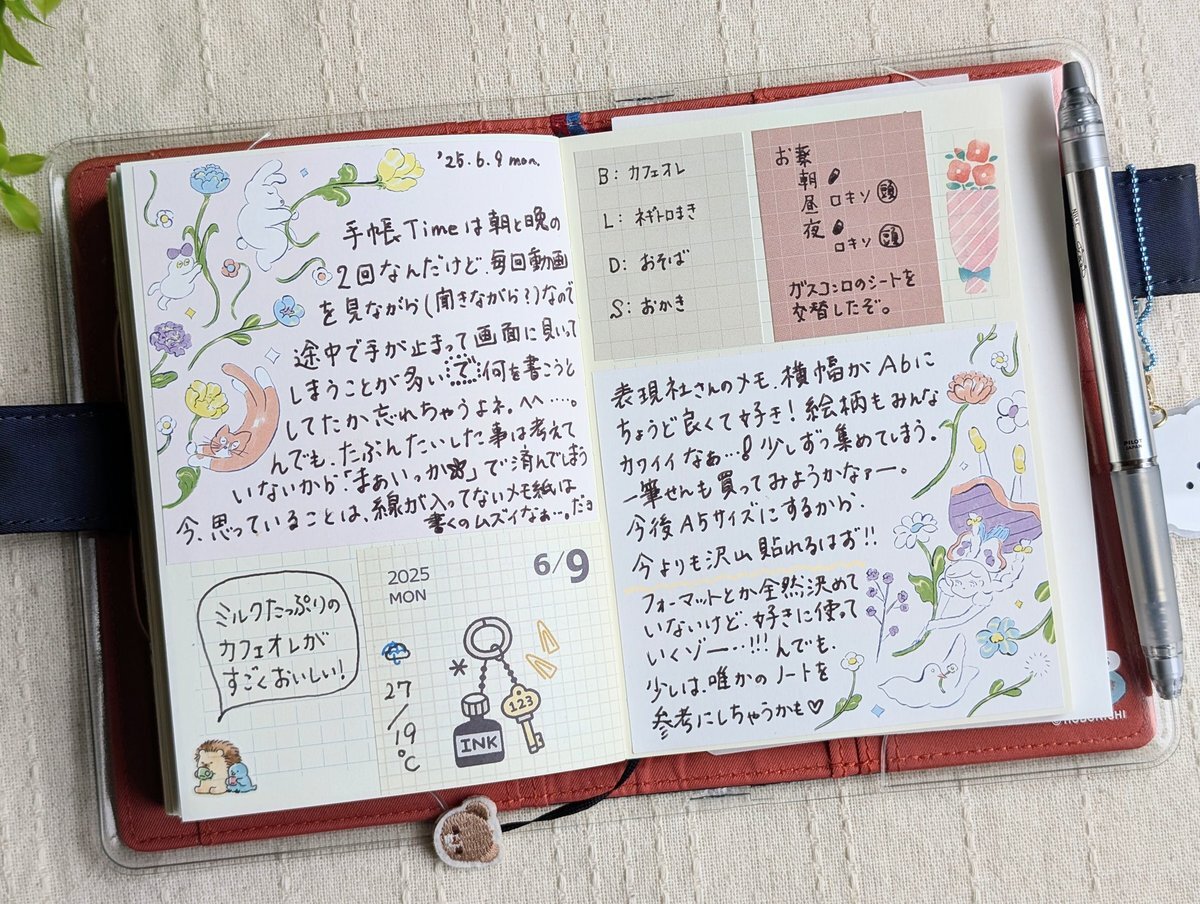 '25.6.9 mon.
手帳Timeは朝と晩の
2回なんだけど、毎回動画
を見ながら(聞きながら?)なので
途中で手が止まって画面に見いって
しまうことが多いで何を書こうと
してたか忘れちゃうよネ。へへ….
んでも、たぶんたいした事は考えて
いないから「まぁいっか」で済んでしまう
今、思っていることは、線が入ってないメモ紙は
書くのムズイなぁ…。だョ
ミルクたっぷりの
カフェオレが
すごくおいしい!
2025
MON
6/9
27
/19
℃
INK
123
B: カフェオレ
L: ネギトロまき
D: おそば
S: おかき
お薬
朝
昼 ロキソ 頭
夜
ロキソ 頭
ガスコンロのシートを
交替したぞ。
表現社さんのメモ、横幅がA6に
ちょうど良くて好き!絵柄もみんな
カワイイなぁ…!少しずつ集めてしまう。
一筆せんも買ってみようかなァー。
今後A5サイズにするから、
今よりも沢山貼れるはず!!
フォーマットとか全然決めて
いないけど、好きに使って
いくゾー…!!!んでも、
少しは、唯かのノートを
参考にしちゃうかも♡
PILOT
JAPAN